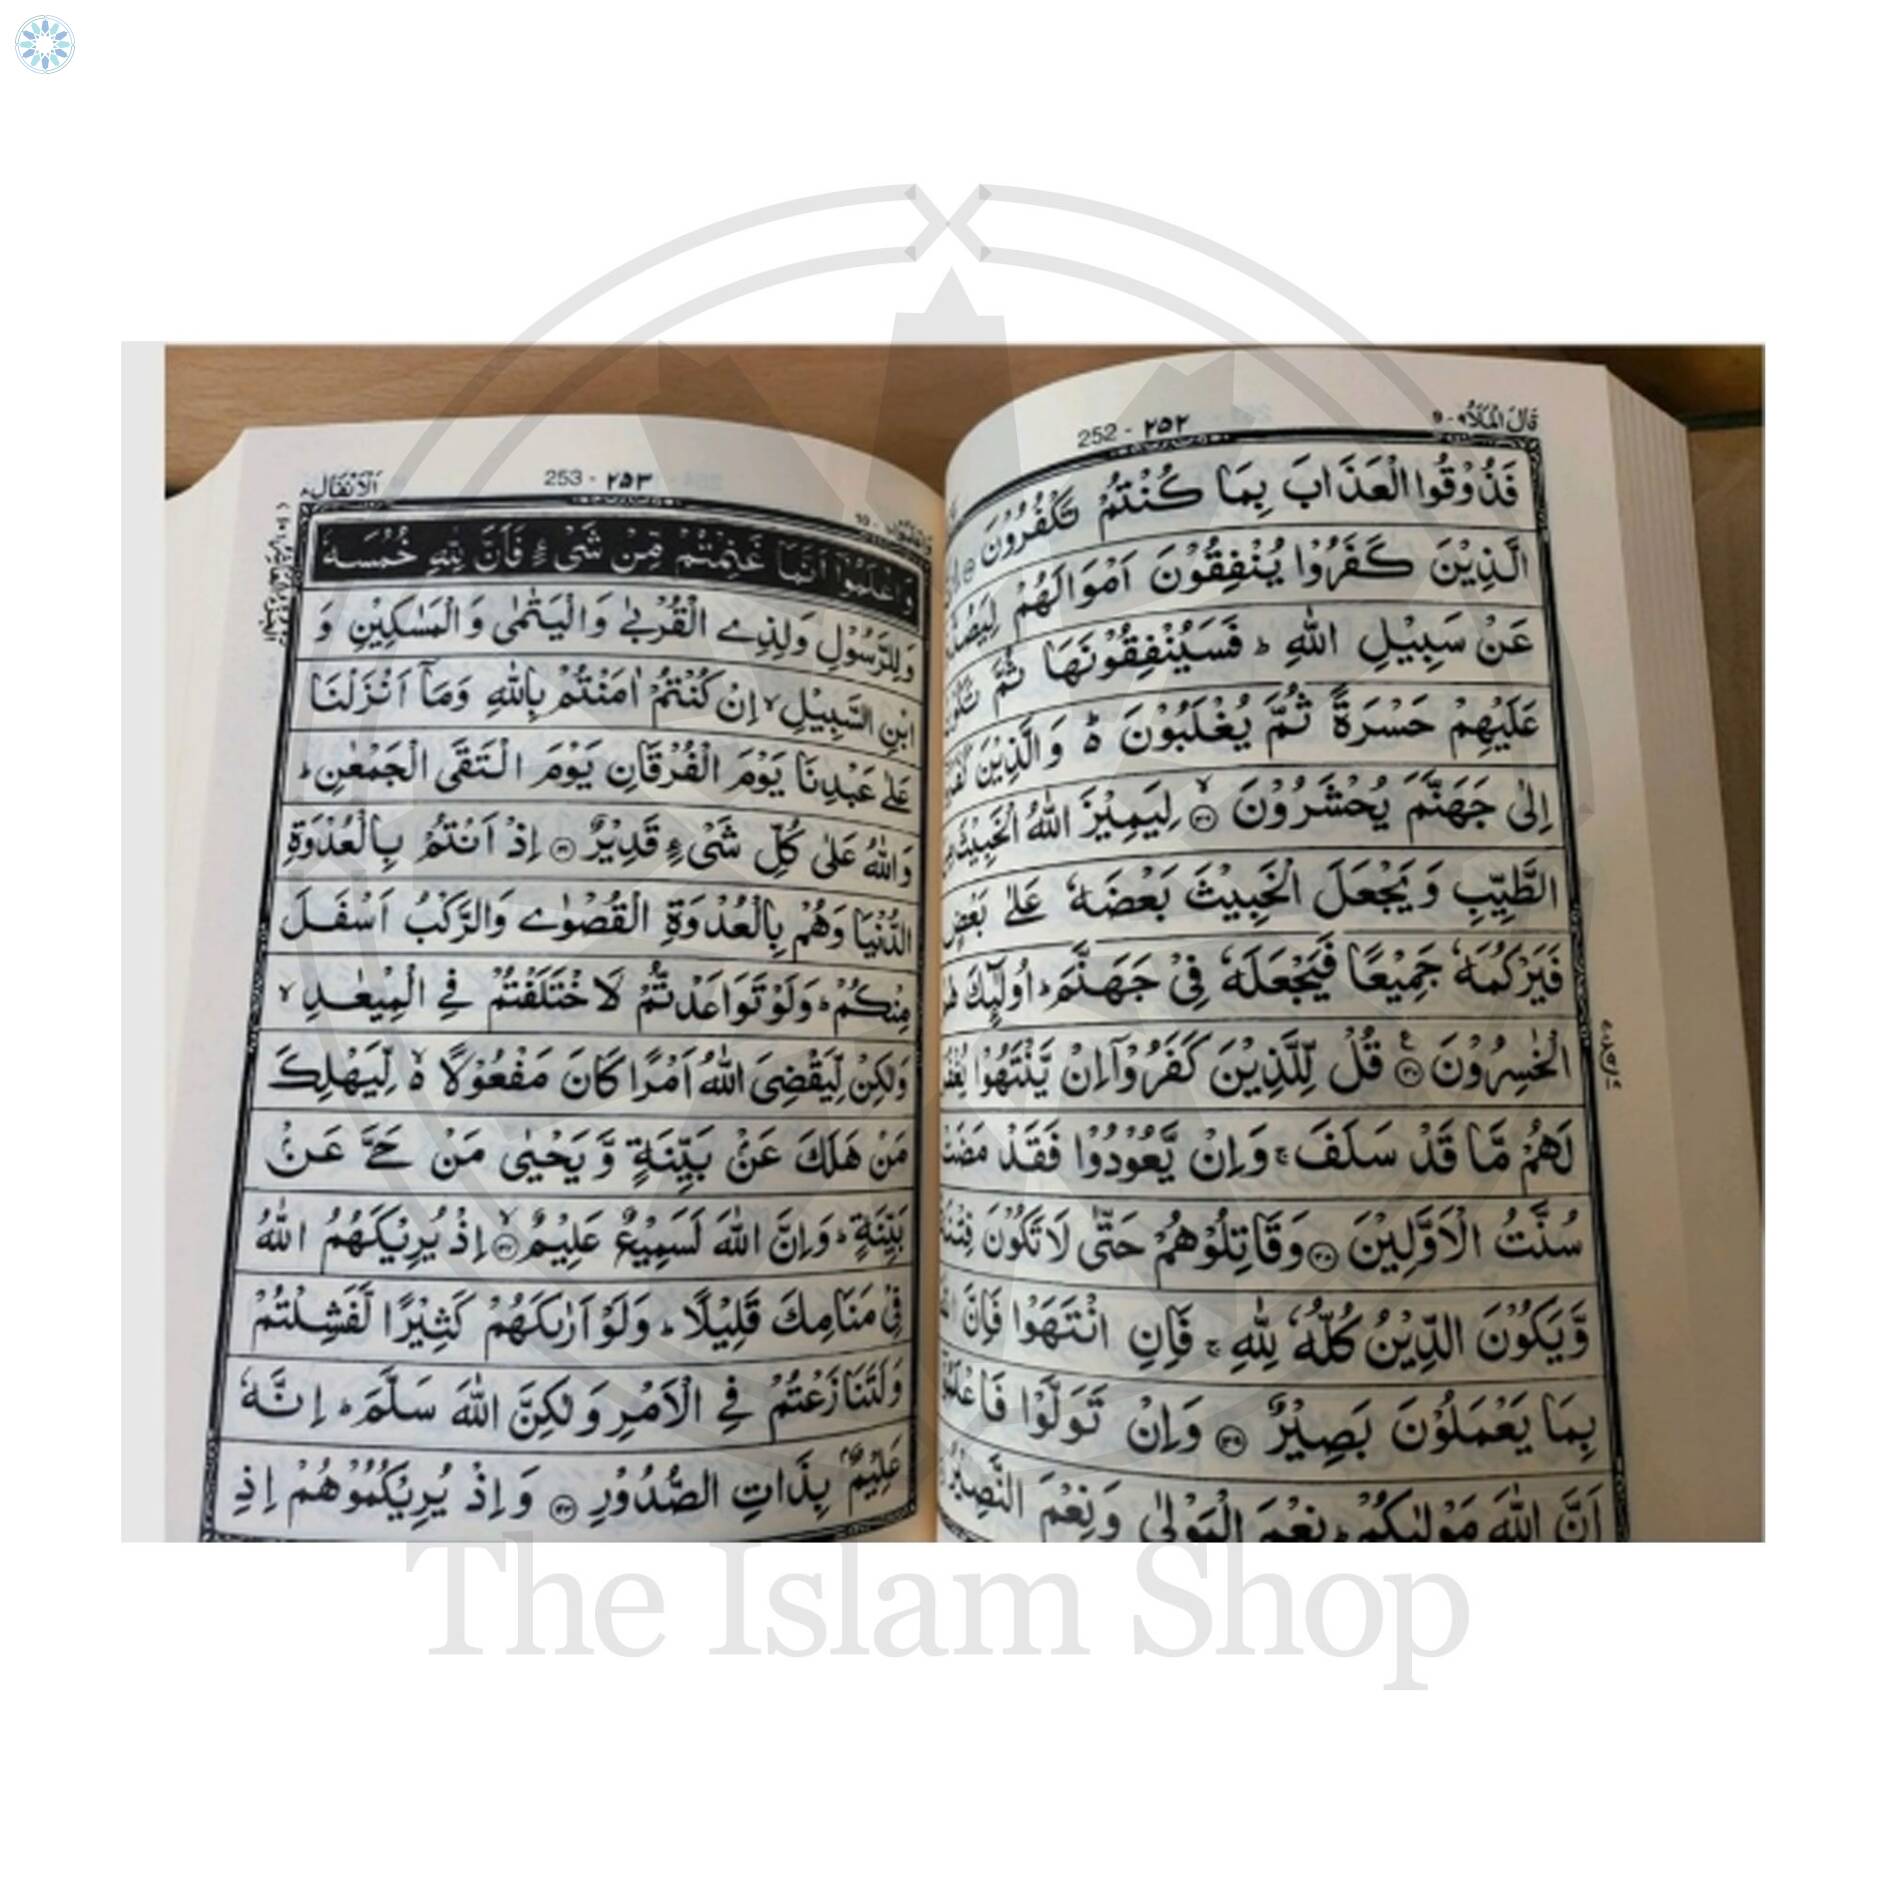 قَالَ الْمَلَاُ ٩ - 9
252 - ٢٥٢
فَذُوْقُوا الْعَذَابَ بِمَا كُنْتُمْ تَكْفُرُوْنَ ۝۳۵
الَّذِيْنَ كَفَرُوْا يُنْفِقُوْنَ اَمْوَالَهُمْ
عَنْ سَبِيْلِ اللّٰهِ ؕ فَسَيُنْفِقُوْنَهَا ثُمَّ
عَلَيْهِمْ حَسْرَةً ثُمَّ يُغْلَبُوْنَ ؕ۬ وَالَّذِيْنَ
اِلٰى جَهَنَّمَ يُحْشَرُوْنَ ۙ۝۳۶ لِيَمِيْزَ اللّٰهُ الْخَبِيْثَ
الطَّيِّبِ وَيَجْعَلَ الْخَبِيْثَ بَعْضَهٗ عَلٰى بَعْضٍ
فَيَرْكُمَهٗ جَمِيْعًا فَيَجْعَلَهٗ فِيْ جَهَنَّمَ ؕ اُولٰٓئِكَ
الْخٰسِرُوْنَ ۝۳۷ع قُلْ لِّلَّذِيْنَ كَفَرُوْۤا اِنْ يَّنْتَهُوْا
لَهُمْ مَّا قَدْ سَلَفَ ۚ وَاِنْ يَّعُوْدُوْا فَقَدْ مَضَتْ
سُنَّتُ الْاَوَّلِيْنَ ۝۳۸ وَقَاتِلُوْهُمْ حَتّٰى لَا تَكُوْنَ فِتْنَةٌ
وَّيَكُوْنَ الدِّيْنُ كُلُّهٗ لِلّٰهِ ۚ فَاِنِ انْتَهَوْا فَاِنَّ
بِمَا يَعْمَلُوْنَ بَصِيْرٌ ۝۳۹ وَاِنْ تَوَلَّوْا فَاعْلَمُوْۤا
اَنَّ اللّٰهَ مَوْلٰىكُمْ ؕ نِعْمَ الْمَوْلٰى وَنِعْمَ النَّصِيْرُ
وَاعْلَمُوْٓا ١٠ - 10
253 - ٢٥٣
اَلْاَنْفَال ٨
وَاعْلَمُوْۤا اَنَّمَا غَنِمْتُمْ مِّنْ شَيْءٍ فَاَنَّ لِلّٰهِ خُمُسَهٗ
وَلِلرَّسُوْلِ وَلِذِي الْقُرْبٰى وَالْيَتٰمٰى وَالْمَسٰكِيْنِ وَ
ابْنِ السَّبِيْلِ ۙ اِنْ كُنْتُمْ اٰمَنْتُمْ بِاللّٰهِ وَمَاۤ اَنْزَلْنَا
عَلٰى عَبْدِنَا يَوْمَ الْفُرْقَانِ يَوْمَ الْتَقَى الْجَمْعٰنِ ؕ
وَاللّٰهُ عَلٰى كُلِّ شَيْءٍ قَدِيْرٌ ۝۴۱ اِذْ اَنْتُمْ بِالْعُدْوَةِ
الدُّنْيَا وَهُمْ بِالْعُدْوَةِ الْقُصْوٰى وَالرَّكْبُ اَسْفَلَ
مِنْكُمْ ؕ وَلَوْ تَوَاعَدْتُّمْ لَاخْتَلَفْتُمْ فِي الْمِيْعٰدِ ۙ
وَلٰكِنْ لِّيَقْضِيَ اللّٰهُ اَمْرًا كَانَ مَفْعُوْلًا ۙ۬ لِّيَهْلِكَ
مَنْ هَلَكَ عَنْۢ بَيِّنَةٍ وَّيَحْيٰى مَنْ حَيَّ عَنْۢ
بَيِّنَةٍ ؕ وَاِنَّ اللّٰهَ لَسَمِيْعٌ عَلِيْمٌ ۙ۝۴۲ اِذْ يُرِيْكَهُمُ اللّٰهُ
فِيْ مَنَامِكَ قَلِيْلًا ؕ وَلَوْ اَرٰىكَهُمْ كَثِيْرًا لَّفَشِلْتُمْ
وَلَتَنَازَعْتُمْ فِي الْاَمْرِ وَلٰكِنَّ اللّٰهَ سَلَّمَ ؕ اِنَّهٗ
عَلِيْمٌۢ بِذَاتِ الصُّدُوْرِ ۝۴۳ وَاِذْ يُرِيْكُمُوْهُمْ اِذِ
The Islam Shop